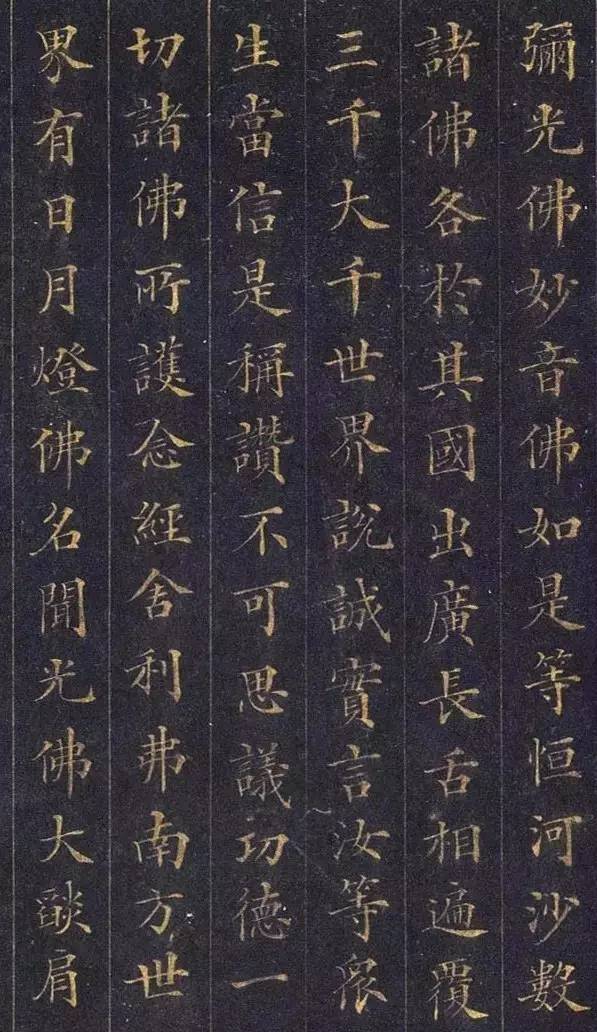 彌光佛妙音佛如是等恒河沙數
諸佛各於其國出廣長舌相遍覆
三千大千世界說誠實言汝等衆
生當信是稱讚不可思議功德一
切諸佛所護念經舍利弗南方世
界有日月燈佛名聞光佛大燄肩